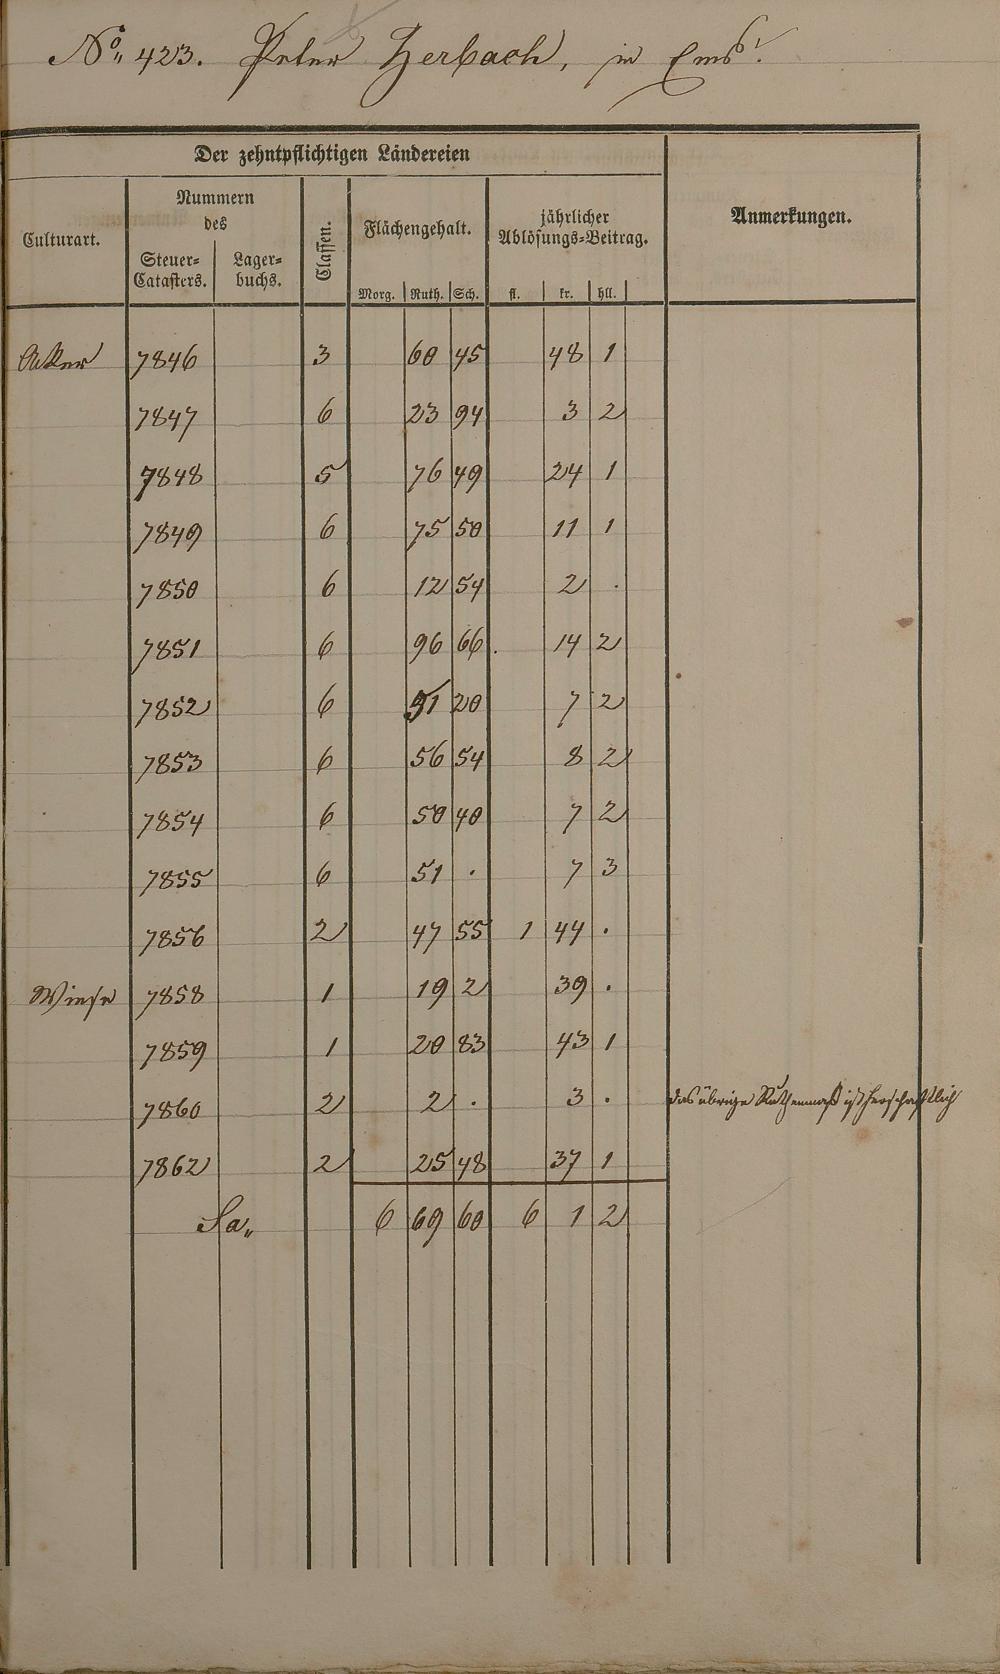 No. 423. Peter Zerbach, in Ems.
Der zehntpflichtigen Ländereien
Culturart.
Nummern
des
Steuer-
Catasters.
Lager-
buchs.
Classen.
Flächengehalt.
Morg. Ruth. Sch.
jährlicher
Ablösungs-Beitrag.
fl. kr. hll.
Anmerkungen.
Acker 7846 3 60 45 48 1
7847 6 23 94 3 2
7848 5 76 49 24 1
7849 6 75 50 11 1
7850 6 12 54 2 .
7851 6 96 66 . 14 2
7852 6 51 20 7 2
7853 6 56 54 8 2
7854 6 50 40 7 2
7855 6 51 . 7 3
7856 2 47 55 1 44 .
Wiese 7858 1 19 2 39 .
7859 1 20 83 43 1
7860 2 2 . 3 . das übrige Ruthenmaß ist herschaftlich
7862 2 25 48 37 1
Sa. 6 69 60 6 1 2